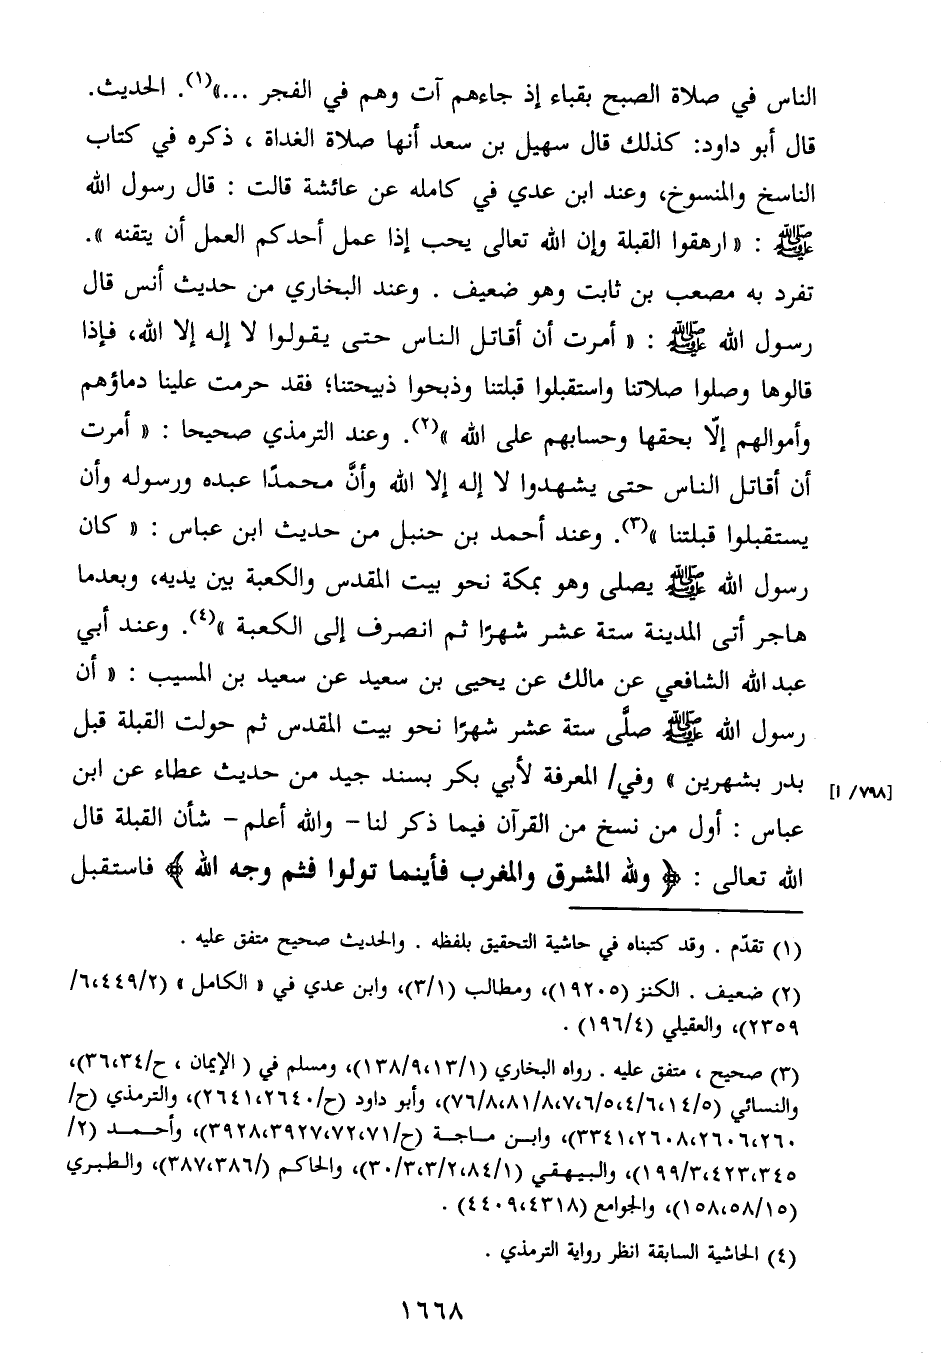 الناس في صلاة الصبح بقباء إذ جاءهم آت وهم في الفجر ...»(١). الحديث.
قال أبو داود: كذلك قال سهيل بن سعد أنها صلاة الغداة ، ذكره في كتاب
الناسخ والمنسوخ، وعند ابن عدي في كامله عن عائشة قالت : قال رسول الله
ﷺ : « ارهقوا القبلة وإن الله تعالى يحب إذا عمل أحدكم العمل أن يتقنه ».
تفرد به مصعب بن ثابت وهو ضعيف . وعند البخاري من حديث أنس قال
رسول الله ﷺ : « أمرت أن أقاتل الناس حتى يقولوا لا إله إلا الله، فإذا
قالوها وصلوا صلاتنا واستقبلوا قبلتنا وذبحوا ذبيحتنا؛ فقد حرمت علينا دماؤهم
وأموالهم إلّا بحقها وحسابهم على الله »(٢). وعند الترمذي صحيحا : « أمرت
أن أقاتل الناس حتى يشهدوا لا إله إلا الله وأنَّ محمدًا عبده ورسوله وأن
يستقبلوا قبلتنا »(٣). وعند أحمد بن حنبل من حديث ابن عباس : « كان
رسول الله ﷺ يصلى وهو بمكة نحو بيت المقدس والكعبة بين يديه، وبعدما
هاجر أتى المدينة ستة عشر شهرًا ثم انصرف إلى الكعبة »(٤). وعند أبي
عبد الله الشافعي عن مالك عن يحيى بن سعيد عن سعيد بن المسيب : « أن
رسول الله ﷺ صلَّى ستة عشر شهرًا نحو بيت المقدس ثم حولت القبلة قبل
بدر بشهرين » وفي/ المعرفة لأبي بكر بسند جيد من حديث عطاء عن ابن [٧٩٨/ ا]
عباس : أول من نسخ من القرآن فيما ذكر لنا - والله أعلم - شأن القبلة قال
الله تعالى : ﴿ ولله المشرق والمغرب فأينما تولوا فثم وجه الله ﴾ فاستقبل
(١) تقدّم . وقد كتبناه في حاشية التحقيق بلفظه . والحديث صحيح متفق عليه .
(٢) ضعيف . الكنز (١٩٢٠٥)، ومطالب (٣/١)، وابن عدي في « الكامل » (٦،٤٤٩/٢/
٢٣٥٩)، والعقيلي (١٩٦/٤) .
(٣) صحيح ، متفق عليه . رواه البخاري (١٣٨/٩،١٣/١)، ومسلم في ( الإيمان ، ح/٣٦،٣٤)،
والنسائي (٧٦/٨،٨١/٨،٧،٦/٥،٤/٦،١٤/٥)، وأبو داود (ح/٢٦٤١،٢٦٤٠)، والترمذي (ح/
٣٣٤١،٢٦٠٨،٢٦٠٦،٢٦٠)، وابن ماجة (ح/٣٩٢٨،٣٩٢٧،٧٢،٧١)، وأحمد (٢/
١٩٩/٣،٤٢٣،٣٤٥)، والبيهقي (٣٠/٣،٣/٢،٨٤/١)، والحاكم (/٣٨٧،٣٨٦)، والطبري
(١٥٨،٥٨/١٥)، والجوامع (٤٤٠٩،٤٣١٨) .
(٤) الحاشية السابقة انظر رواية الترمذي .
١٦٦٨